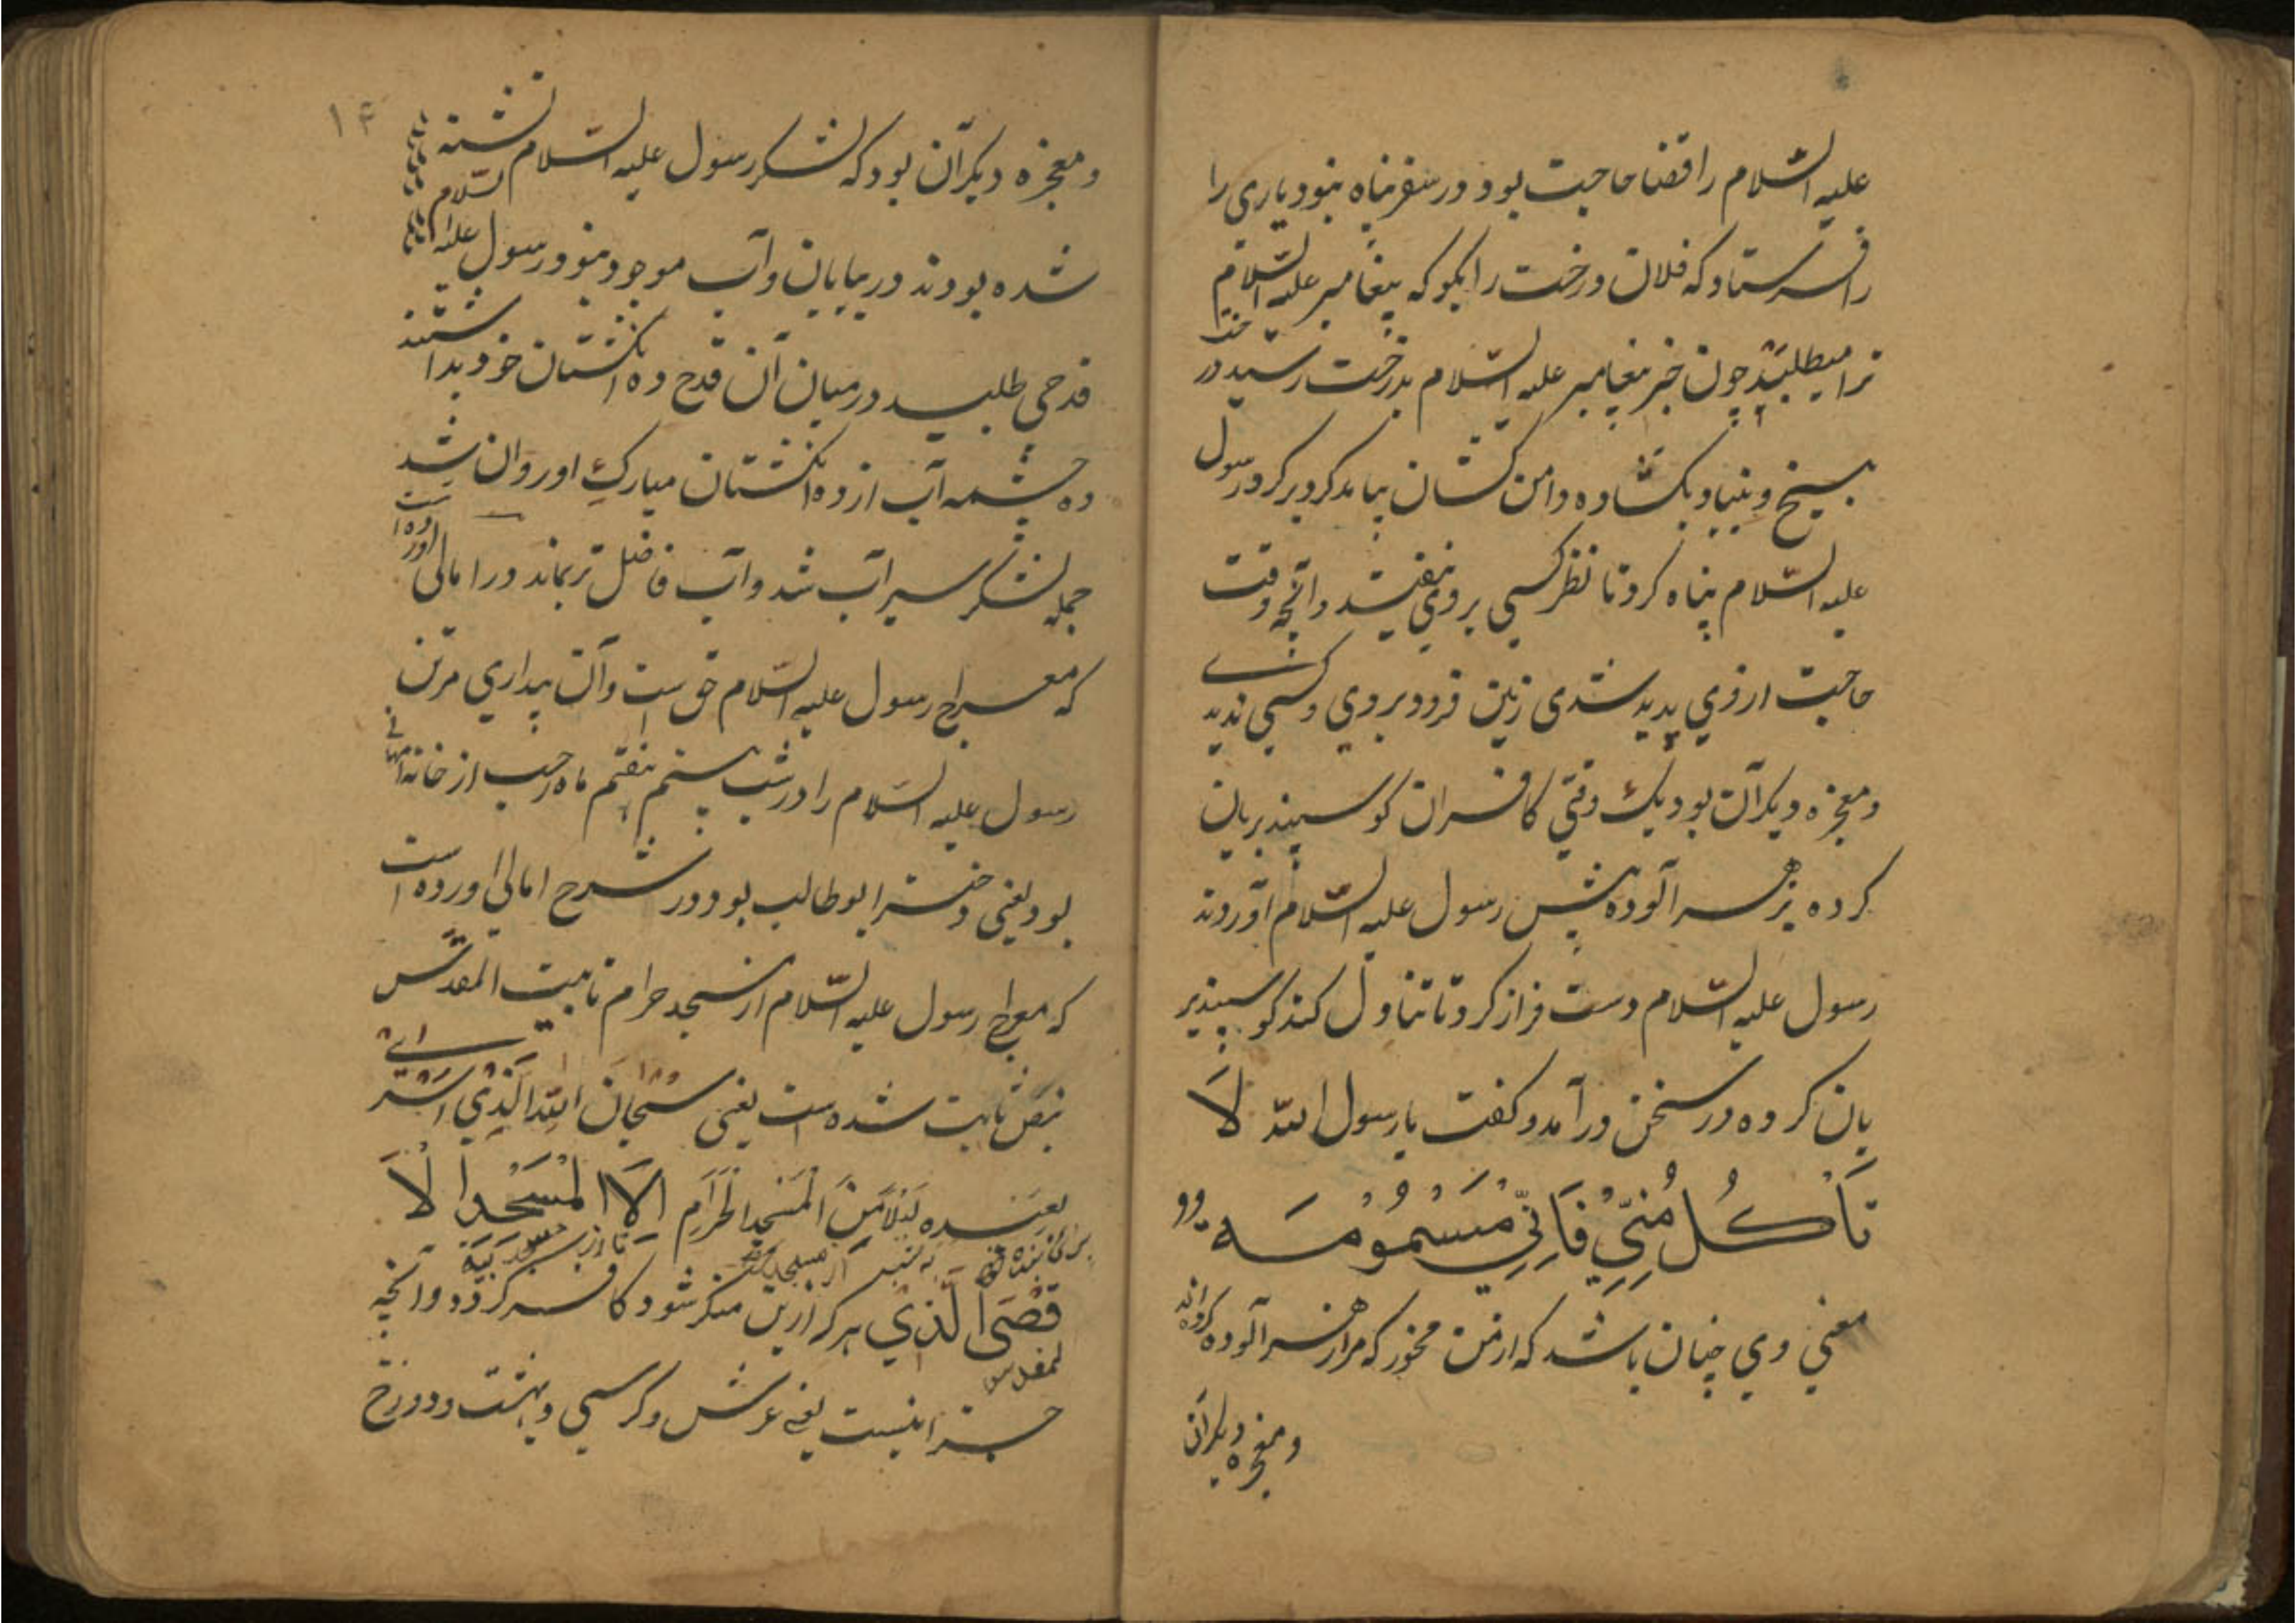 علیه السّلام را قضا حاجت بود و در سفر پناه نبود یاری را
را فرستاد که فلان درخت را بگو که پیغامبر علیه السّلام
ترا میطلبد چون خبر پیغامبر علیه السّلام بدرخت رسید درخت
بیخ و بنیاد بکشاده و دامن کشان بیامد کرد بر کرد رسول
علیه السّلام پناه کرد تا نظر کسی بروی نیفتد و آنچه وقت
حاجت از وی پدید شدی زمین فرو بروی و کسی ندیدے
و معجزه دیکر آن بود یک وقتی کافران کوسپند بریان
کرده بزهر آلوده پیش رسول علیه السّلام آوردند
رسول علیه السّلام دست فراز کرد تا تناول کند کوسپند بر
یان کرده در سخن درآمد و کفت یا رسول الله لَا
تَأْكُلْ مِنِّيْ فَاِنِّيْ مَسْمُوْمَه
معنی وی چنان باشد که از من مخور که مرا زهر آلوده کرده‌اند
و معجزه دیکر آن
۱۴
و معجزه دیکر آن بود که لشکر رسول علیه السّلام تشنه
شده بودند در بیابان و آب موجود نبود رسول علیه السّلام
قدحی طلبید در میان آن قدح ده انکشتان خود بداشتند
ده چشمه آب از ده انکشتان مبارک او روان شد
جمله لشکر سیر آب شد و آب فاضل تر بماند در امالی آورده است
که معراج رسول علیه السّلام حق است و آن بیداری مر تن
رسول علیه السّلام را در شب بیستم هفتم ماه رجب از خانه امهانی
بود یعنی دختر ابو طالب بود و در شرح امالی آورده است
که معراج رسول علیه السّلام از مسجد حرام تا بیت المقدس
بنص ثابت شده است یعنی سبحان الله الذي اسرى
بعبده لَيْلًا مِّنَ الْمَسْجِدِ الْحَرَامِ اِلَا الْمَسْجِدِ الْاَ
قْصَى الَّذِيْ هر که ازین منکر شود کافر کردد و آنچه
جز اینست یعنے عرش و کرسی و بهشت و دوزخ